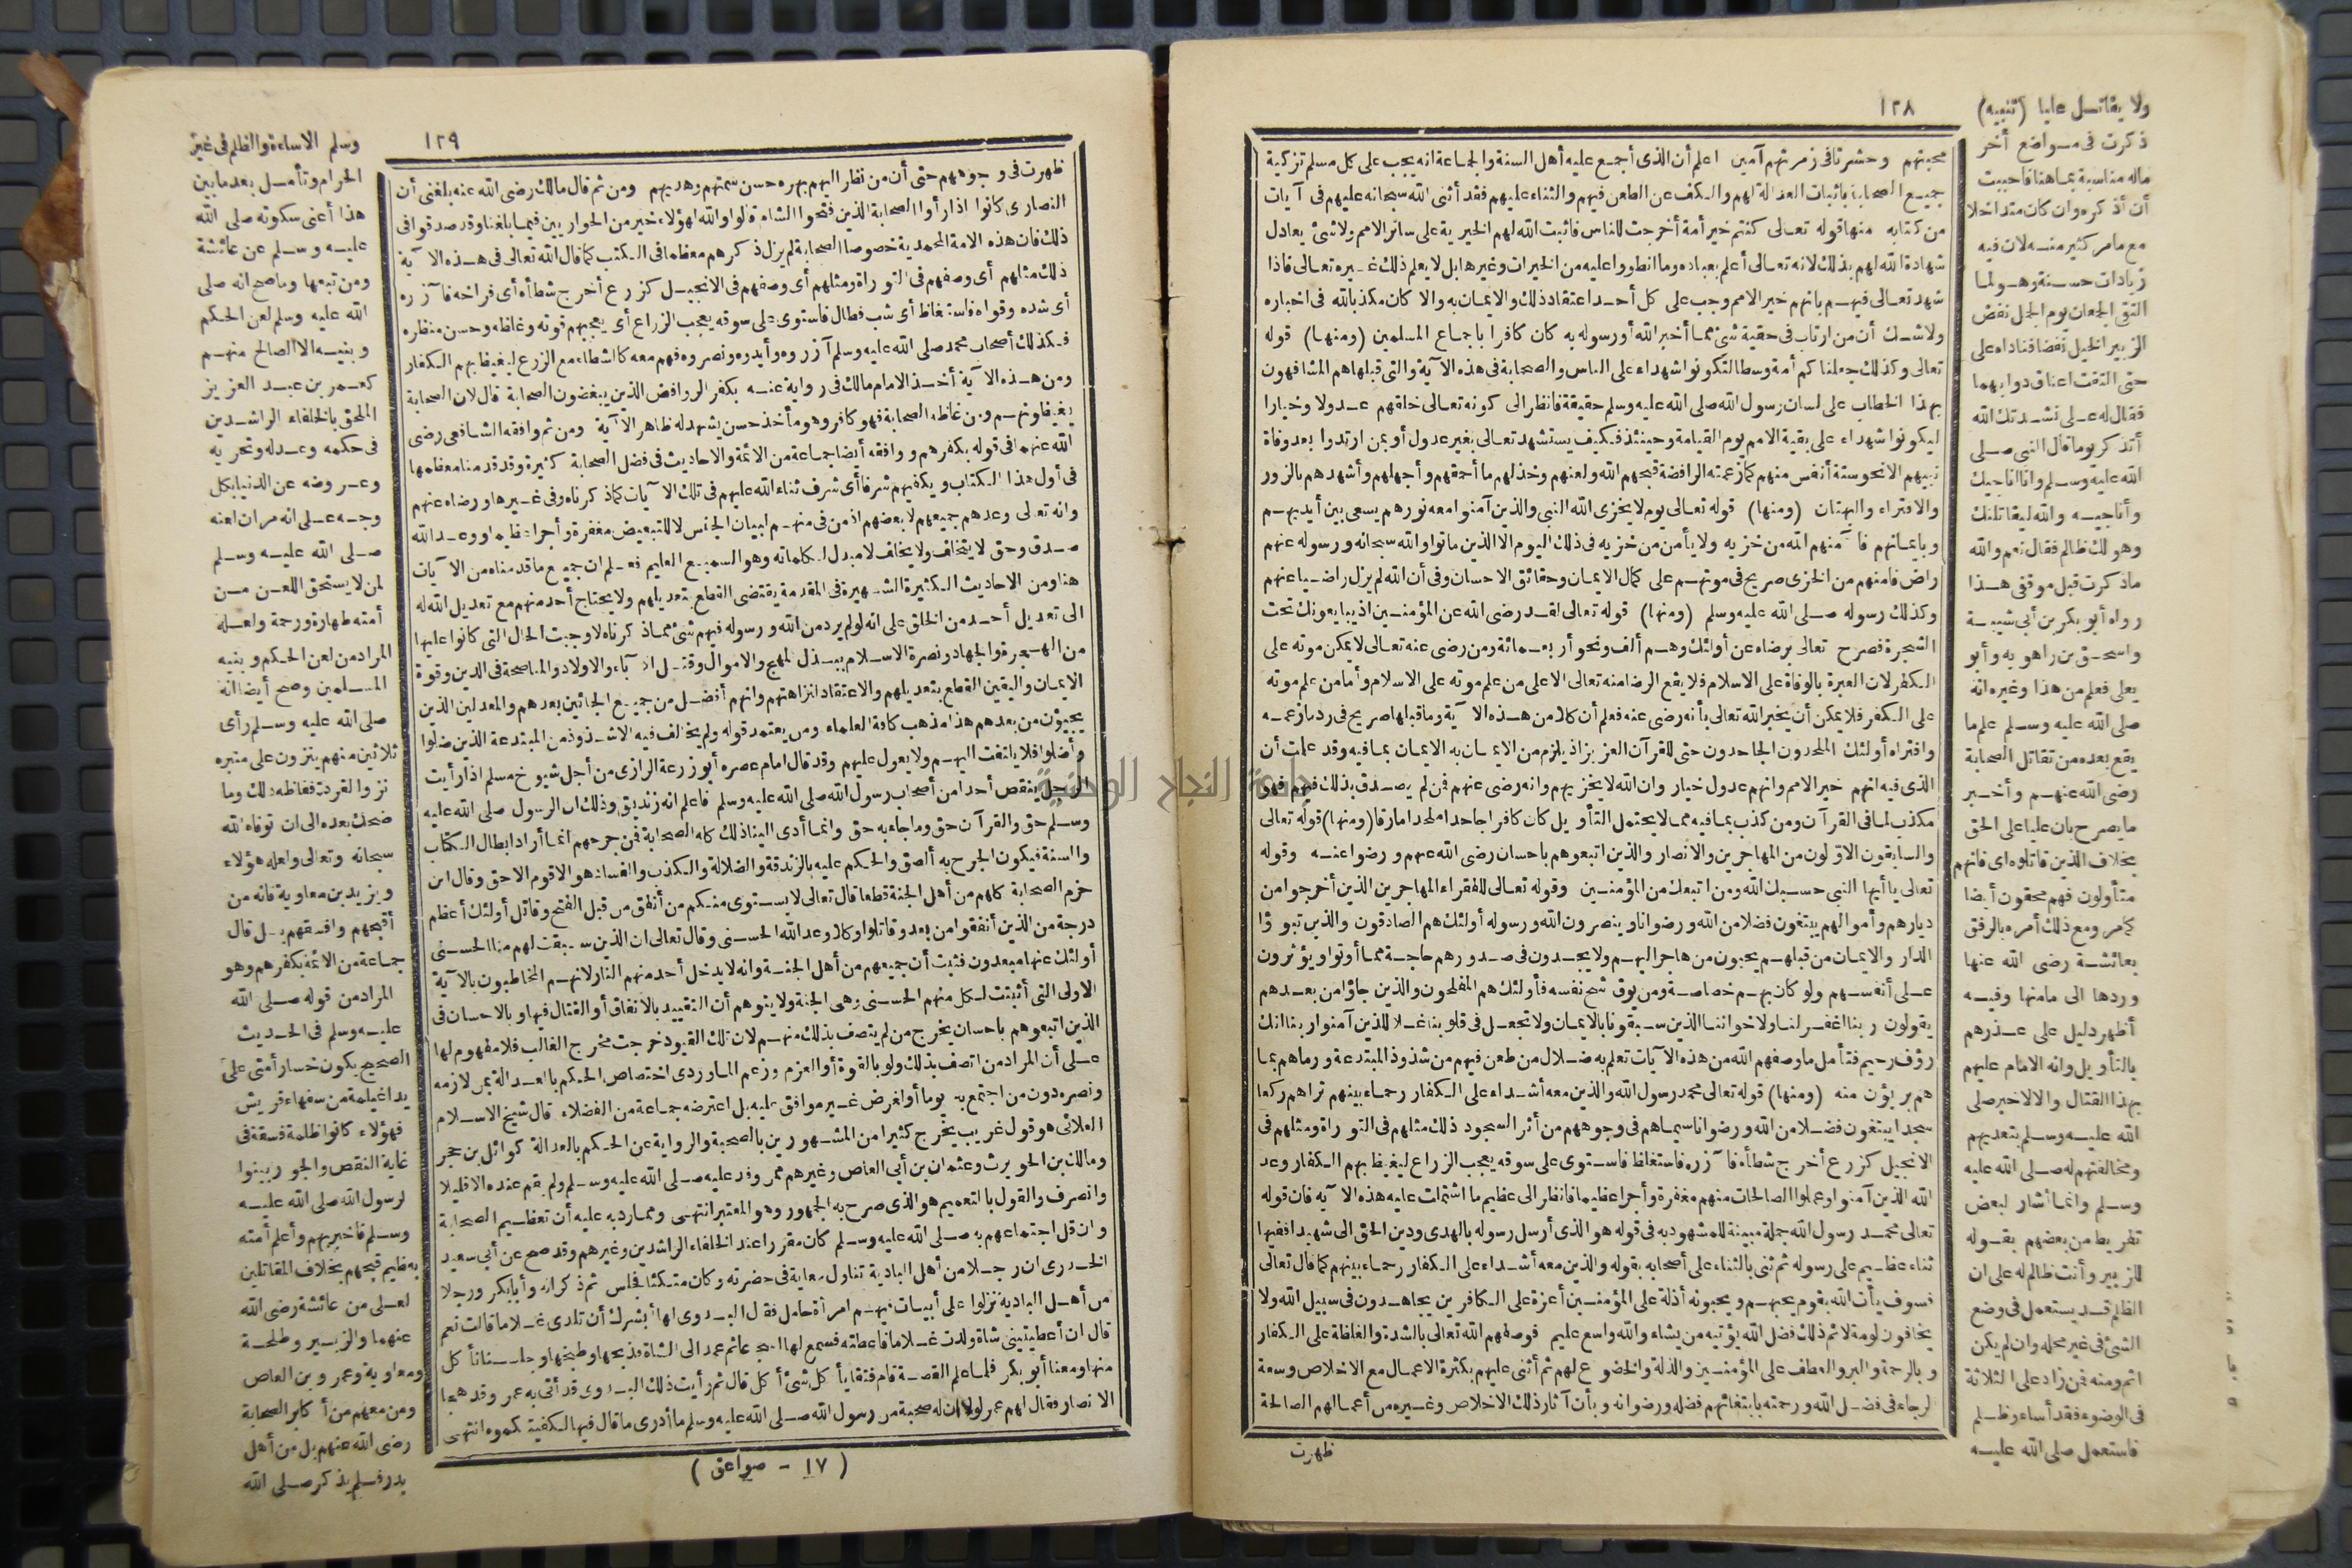 ١٢٨
محبتهم وحشرنا فى زمرتهم آمين اعلم أن الذى أجمع عليه أهل السنة والجماعة انه يجب على كل مسلم تزكية
جميع الصحابة باثبات العدالة لهم والكف عن الطعن فيهم والثناء عليهم فقد أثنى الله سبحانه عليهم فى آيات
من كتابه منها قوله تعالى كنتم خير أمة أخرجت للناس فاثبت الله لهم الخيرية على سائر الامم ولا شئ يعادل
شهادة الله لهم بذلك لانه تعالى أعلم بعباده وما انطووا عليه من الخيرات وغيرها بل لا يعلم ذلك غيره تعالى فاذا
شهد تعالى فيهم بانهم خير الامم وجب على كل أحد اعتقاد ذلك والايمان به والا كان مكذبا لله فى اخباره
ولا شك أن من ارتاب فى حقية شئ مما أخبر الله أو رسوله به كان كافرا باجماع المسلمين (ومنها) قوله
تعالى وكذلك جعلناكم أمة وسطا لتكونوا شهداء على الناس والصحابة فى هذه الآية والتى قبلها هم المشافهون
بهذا الخطاب على لسان رسول الله صلى الله عليه وسلم حقيقة فانظر الى كونه تعالى خلقهم عدولا وخيارا
ليكونوا شهداء على بقية الامم يوم القيامة وحينئذ فكيف يستشهد تعالى بغير عدول أو بمن ارتدوا بعد وفاة
نبيهم الا نحو ستة أنفس منهم كما زعمته الرافضة قبحهم الله ولعنهم وخذلهم ما أحمقهم وأجهلهم وأشهدهم بالزور
والافتراء والبهتان (ومنها) قوله تعالى يوم لا يخزى الله النبى والذين آمنوا معه نورهم يسعى بين أيديهم
وبايمانهم فآمنهم الله من خزيه ولا يأمن من خزيه فى ذلك اليوم الا الذين ماتوا والله سبحانه ورسوله عنهم
راض فامنهم من الخزى صريح فى موتهم على كمال الايمان وحقائق الاحسان وفى أن الله لم يزل راضيا عنهم
وكذلك رسوله صلى الله عليه وسلم (ومنها) قوله تعالى لقد رضى الله عن المؤمنين اذ يبايعونك تحت
الشجرة فصرح تعالى برضاه عن أولئك وهم ألف ونحو أربعمائة ومن رضى عنه تعالى لا يمكن موته على
الكفر لان العبرة بالوفاة على الاسلام فلا يقع الرضا منه تعالى الا على من علم موته على الاسلام وأما من علم موته
على الكفر فلا يمكن أن يخبر الله تعالى بأنه رضى عنه فعلم أن كلا من هذه الآية وما قبلها صريح فى رد ما زعمه
وافتراه أولئك الملحدون الجاحدون حتى للقرآن العزيز اذ يلزم من الايمان به الايمان بما فيه وقد علمت أن
الذى فيه انهم خير الامم وانهم عدول خيار وان الله لا يخزيهم وانه رضى عنهم فمن لم يصدق بذلك فيهم فهو
مكذب لما فى القرآن ومن كذب بما فيه مما لا يحتمل التأويل كان كافرا جاحدا ملحدا مارقا (ومنها) قوله تعالى
والسابقون الاولون من المهاجرين والانصار والذين اتبعوهم باحسان رضى الله عنهم ورضوا عنه وقوله
تعالى يا أيها النبى حسبك الله ومن اتبعك من المؤمنين وقوله تعالى للفقراء المهاجرين الذين أخرجوا من
ديارهم وأموالهم يبتغون فضلا من الله ورضوانا وينصرون الله ورسوله أولئك هم الصادقون والذين تبوؤا
الدار والايمان من قبلهم يحبون من هاجر اليهم ولا يجدون فى صدورهم حاجة مما أوتوا ويؤثرون
على أنفسهم ولو كان بهم خصاصة ومن يوق شح نفسه فأولئك هم المفلحون والذين جاؤا من بعدهم
يقولون ربنا اغفر لنا ولاخواننا الذين سبقونا بالايمان ولا تجعل فى قلوبنا غلا للذين آمنوا ربنا انك
رؤف رحيم فتأمل ما وصفهم الله من هذه الآيات تعلم به ضلال من طعن فيهم من شذوذ المبتدعة ورماهم بما
هم بريؤن منه (ومنها) قوله تعالى محمد رسول الله والذين معه أشداء على الكفار رحماء بينهم تراهم ركعا
سجدا يبتغون فضلا من الله ورضوانا سيماهم فى وجوههم من أثر السجود ذلك مثلهم فى التوراة ومثلهم فى
الانجيل كزرع أخرج شطأه فآزره فاستغلظ فاستوى على سوقه يعجب الزراع ليغيظ بهم الكفار وعد
الله الذين آمنوا وعملوا الصالحات منهم مغفرة وأجرا عظيما فانظر الى عظيم ما اشتملت عليه هذه الآية فان قوله
تعالى محمد رسول الله جملة مبينة للمشهود به فى قوله هو الذى أرسل رسوله بالهدى ودين الحق الى شهيدا ففيها
ثناء عظيم على رسوله ثم ثنى بالثناء على أصحابه بقوله والذين معه أشداء على الكفار رحماء بينهم كما قال تعالى
فسوف يأت الله بقوم يحبهم ويحبونه أذلة على المؤمنين أعزة على الكافرين يجاهدون فى سبيل الله ولا
يخافون لومة لائم ذلك فضل الله يؤتيه من يشاء والله واسع عليم فوصفهم الله تعالى بالشدة والغلظة على الكفار
وبالرحمة والبر والعطف على المؤمنين والذلة والخضوع لهم ثم أثنى عليهم بكثرة الاعمال مع الاخلاص وسعة
لرجاء فى فضل الله ورحمته بابتغائهم فضله ورضوانه وبأن آثار ذلك الاخلاص وغيره من أعمالهم الصالحة
ظهرت
ولا يقاتل عليا (تنبيه)
ذكرت فى مواضع أخر
ماله مناسبة بما هنا فاحببت
أن أذكره وان كان متداخلا
مع ما مر كثير منه لان فيه
زيادات حسنة وهو لما
التقى الجمعان يوم الجمل نفض
الزبير الخيل نفضا فناداه على
حتى التقت اعناق دوابهما
فقال له على نشدتك الله
أتذكر يوما قال النبى صلى
الله عليه وسلم وأنا أناجيك
وأناجيه والله ليقاتلنك
وهو لك ظالم فقال نعم والله
ما ذكرت قبل موقفى هذا
رواه أبو بكر بن أبى شيبة
واسحق بن راهويه وأبو
يعلى فعلم من هذا وغيره انه
صلى الله عليه وسلم علم ما
يقع بعده من تقاتل الصحابة
رضى الله عنهم وأخبر
ما يصرح بان عليا على الحق
بخلاف الذين قاتلوه اى فانهم
متأولون فهم محقون أيضا
كما مر ومع ذلك أمره بالرفق
بعائشة رضى الله عنها
وردها الى مامنها وفيه
أظهر دليل على عذرهم
بالتأويل وانه الامام عليهم
بهذا القتال والا لاخبر صلى
الله عليه وسلم بتعديهم
ومخالفتهم له صلى الله عليه
وسلم وانما أشار لبعض
تفريط من بعضهم بقوله
للزبير وأنت ظالم له على ان
الظلم قد يستعمل فى وضع
الشئ فى غير محله وان لم يكن
اثم ومنه فمن زاد على الثلاثة
فى الوضوء فقد أساء وظلم
فاستعمل صلى الله عليه
١٢٩
ظهرت فى وجوههم حتى أن من نظر اليهم بهره حسن سمتهم وهديهم ومن ثم قال مالك رضى الله عنه بلغنى أن
النصارى كانوا اذا رأوا الصحابة الذين فتحوا الشام قالوا والله لهؤلاء خير من الحواريين فيما بلغنا وقد صدقوا فى
ذلك فان هذه الامة المحمدية خصوصا الصحابة لم يزل ذكرهم معظما فى الكتب كما قال الله تعالى فى هذه الآية
ذلك مثلهم أى وصفهم فى التوراة ومثلهم أى وصفهم فى الانجيل كزرع أخرج شطأه أى فراخه فآزره
أى شده وقواه فاستغلظ أى شب فطال فاستوى على سوقه يعجب الزراع أى يعجبهم قوته وغلظه وحسن منظره
فكذلك أصحاب محمد صلى الله عليه وسلم آزروه وأيدوه ونصروه فهم معه كالشطاء مع الزرع ليغيظ بهم الكفار
ومن هذه الآية أخذ الامام مالك فى رواية عنه بكفر الروافض الذين يبغضون الصحابة قال لان الصحابة
يغيظونهم ومن غاظه الصحابة فهو كافر وهو مأخذ حسن يشهد له ظاهر الآية ومن ثم وافقه الشافعى رضى
الله عنهما فى قوله بكفرهم ووافقه أيضا جماعة من الائمة والاحاديث فى فضل الصحابة كثيرة وقد قدمنا معظمها
فى أول هذا الكتاب ويكفيهم شرفا أى شرف ثناء الله عليهم فى تلك الآيات كما ذكرناه وفى غيرها ورضاه عنهم
وانه تعالى وعدهم جميعهم لا بعضهم اذ من فى منهم لبيان الجنس لا للتبعيض مغفرة وأجرا عظيما ووعد الله
صدق وحق لا يتخلف ولا يخلف لا مبدل لكلماته وهو السميع العليم فعلم ان جميع ما قدمناه من الآيات
هنا ومن الاحاديث الكثيرة الشهيرة فى المقدمة يقتضى القطع بتعديلهم ولا يحتاج أحد منهم مع تعديل الله له
الى تعديل أحد من الخلق على انه لو لم يرد من الله ورسوله فيهم شئ مما ذكرناه لاوجبت الحال التى كانوا عليها
من الهجرة والجهاد ونصرة الاسلام ببذل المهج والاموال وقتل الآباء والاولاد والمناصحة فى الدين وقوة
الايمان واليقين القطع بتعديلهم والاعتقاد لنزاهتهم وانهم أفضل من جميع الجائين بعدهم والمعدلين الذين
يجيؤن من بعدهم هذا مذهب كافة العلماء ومن يعتمد قوله ولم يخالف فيه الا شذوذ من المبتدعة الذين ضلوا
وأضلوا فلا يلتفت اليهم ولا يعول عليهم وقد قال امام عصره أبو زرعة الرازى من أجل شيوخ مسلم اذا رأيت
الرجل ينتقص أحدا من أصحاب رسول الله صلى الله عليه وسلم فاعلم انه زنديق وذلك ان الرسول صلى الله عليه
وسلم حق والقرآن حق وما جاء به حق وانما أدى الينا ذلك كله الصحابة فمن جرحهم انما أراد ابطال الكتاب
والسنة فيكون الجرح به ألصق والحكم عليه بالزندقة والضلالة والكذب والفساد هو الاقوم الاحق وقال ابن
حزم الصحابة كلهم من أهل الجنة قطعا قال تعالى لا يستوى منكم من أنفق من قبل الفتح وقاتل أولئك أعظم
درجة من الذين أنفقوا من بعد وقاتلوا وكلا وعد الله الحسنى وقال تعالى ان الذين سبقت لهم منا الحسنى
أولئك عنها مبعدون فثبت أن جميعهم من أهل الجنة وانه لا يدخل أحد منهم النار لانهم المخاطبون بالآية
الاولى التى أثبتت لكل منهم الحسنى وهى الجنة ولا يتوهم أن التقييد بالانفاق أو القتال فيها وبالاحسان فى
الذين اتبعوهم باحسان يخرج من لم يتصف بذلك منهم لان تلك القيود خرجت مخرج الغالب فلا مفهوم لها
على أن المراد من اتصف بذلك ولو بالقوة أو العزم وزعم الماوردى اختصاص الحكم بالعدالة بمن لازمه
ونصره دون من اجتمع به يوما أو لغرض غير موافق عليه بل اعترضه جماعة من الفضلاء قال شيخ الاسلام
العلائى هو قول غريب يخرج كثيرا من المشهورين بالصحبة والرواية عن الحكم بالعدالة كوائل بن حجر
ومالك بن الحويرث وعثمان بن أبى العاص وغيرهم ممن وفد عليه صلى الله عليه وسلم ولم يقم عنده الا قليلا
وانصرف والقول بالتعميم هو الذى صرح به الجمهور وهو المعتبر انتهى ومما رد به عليه أن تعظيم الصحابة
وان قل اجتماعهم به صلى الله عليه وسلم كان مقررا عند الخلفاء الراشدين وغيرهم وقد صح عن أبى سعيد
الخدرى ان رجلا من أهل البادية تناول معاوية فى حضرته وكان متكئا فجلس ثم ذكر انه وأبا بكر ورجلا
من أهل البادية نزلوا على أبيات فيهم امرأة حامل فقال البدوى لها أبشرك أن تلدى غلاما قالت نعم
قال ان أعطيتينى شاة ولدت غلاما فاعطته فسجع لها أسجاعا ثم عمد الى الشاة فذبحها وطبخها وجلسنا نأكل
منها ومعنا أبو بكر فلما علم القصة قام فتقايأ كل شئ أكل قال ثم رأيت ذلك البدوى قد أتى به عمر وقد هجا
الانصار فقال لهم عمر لولا ان له صحبة من رسول الله صلى الله عليه وسلم ما أدرى ما قال فيها لكفيتكموه انتهى
(١٧ - صواعق)
وسلم الاساءة والظلم فى غير
الحرام وتأمل بعد ما بين
هذا أعنى سكوته صلى الله
عليه وسلم عن عائشة
ومن تبعها وما صح انه صلى
الله عليه وسلم لعن الحكم
وبنيه الا الصالح منهم
كعمر بن عبد العزيز
الملحق بالخلفاء الراشدين
فى حكمه وعدله وتحريه
وعروضه عن الدنيا بكل
وجه على انه مر ان لعنه
صلى الله عليه وسلم
لمن لا يستحق اللعن من
أمته طهارة ورحمة ولعله
المراد من لعن الحكم وبنيه
المسلمين وصح أيضا انه
صلى الله عليه وسلم رأى
ثلاثين منهم ينزون على منبره
نزو القردة فغاظه ذلك وما
ضحك بعده الى ان توفاه الله
سبحانه وتعالى ولعله هؤلاء
ويزيد بن معاوية فانه من
أقبحهم وافسقهم بل قال
جماعة من الائمة بكفرهم وهو
المراد من قوله صلى الله
عليه وسلم فى الحديث
الصحيح يكون خسار أمتى على
يد اغيلمة من سفهاء قريش
فهؤلاء كانوا ظلمة فسقة فى
غاية النقص والجور بينوا
لرسول الله صلى الله عليه
وسلم فاخبر بهم وأعلم أمته
بعظيم قبحهم بخلاف المقاتلين
لعلى من عائشة رضى الله
عنهما والزبير وطلحة
ومعاوية وعمرو بن العاص
ومن معهم من أكابر الصحابة
رضى الله عنهم بل من أهل
بدر فلم يذكر صلى الله
جامعة النجاح الوطنية